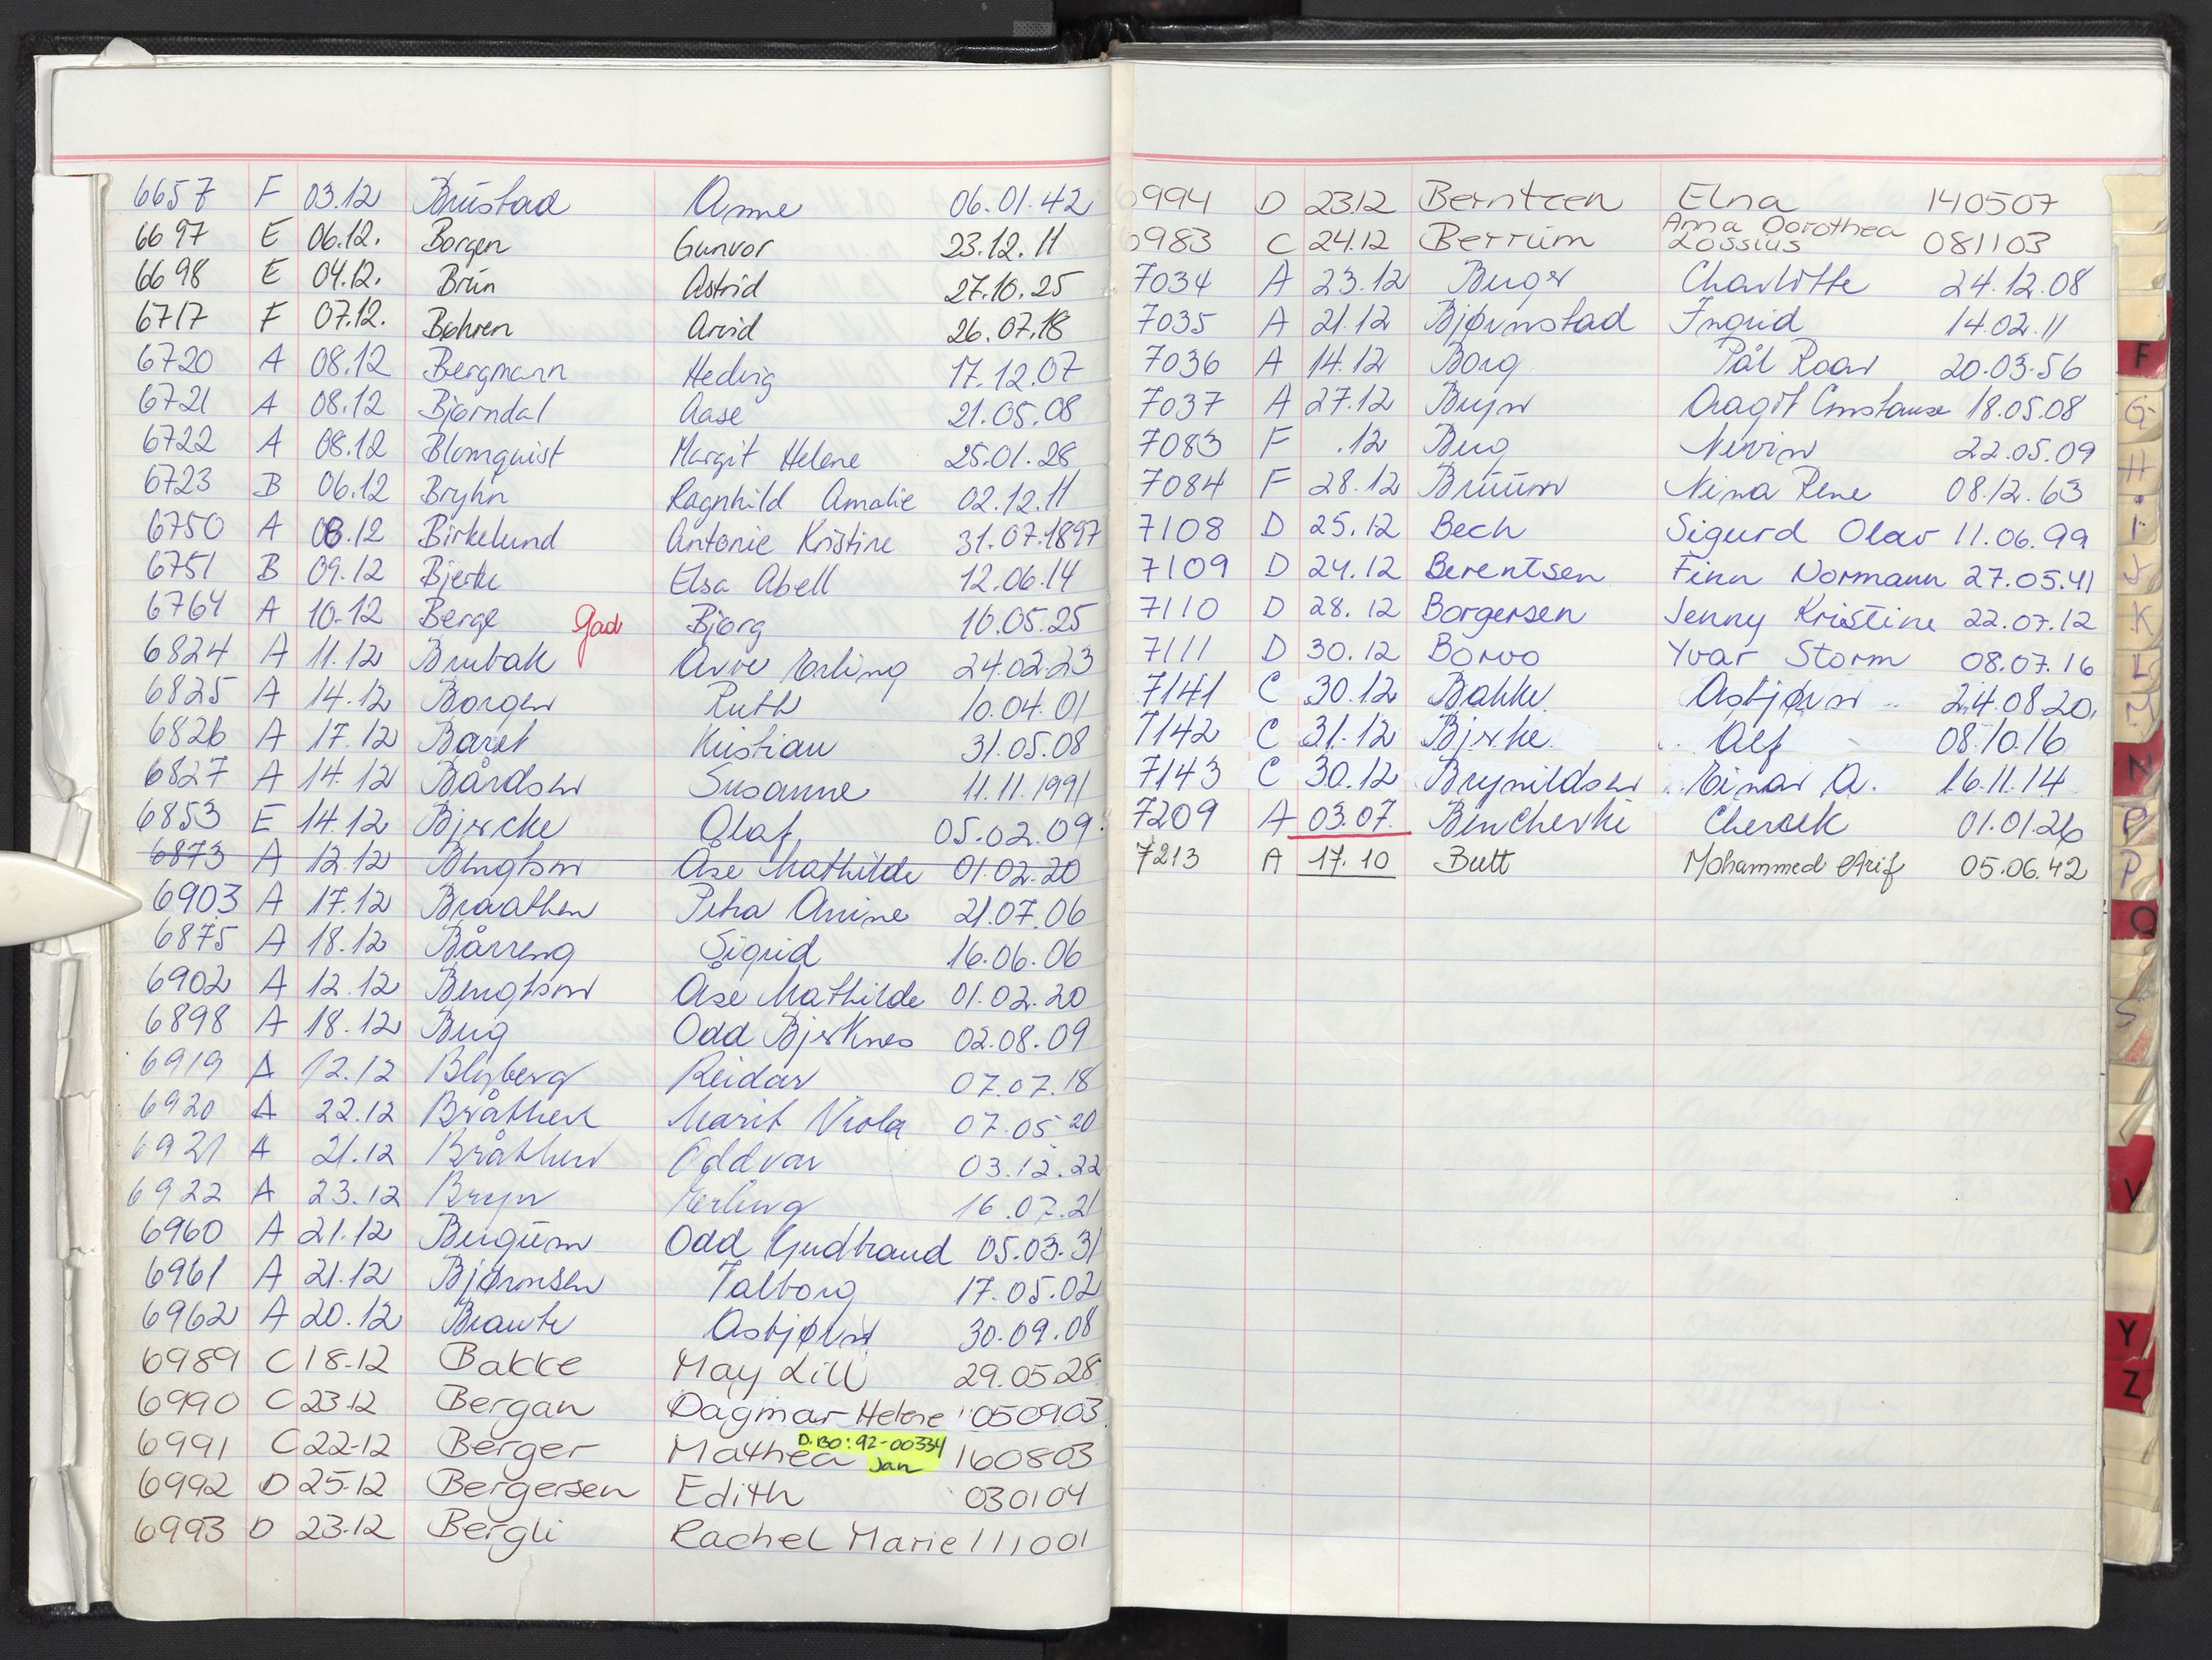 6657 F 03.12 Brustad Anne 06.01.42
6697 E 06.12. Borgen Gunvor 23.12.11
6698 E 04.12. Brun Astrid 27.10.25
6717 F 07.12. Bohren Arvid 26.07.18
6720 A 08.12 Bergmann Hedvig 17.12.07
6721 A 08.12 Bjørndal Aase 21.05.08
6722 A 08.12 Blomquist Margit Helene 25.01.28
6723 B 06.12 Bryhn Ragnhild Amalie 02.12.11
6750 A 08.12 Birkelund Antonie Kristine 31.07.1897
6751 B 09.12 Bjerke Elsa Abell 12.06.14
6764 A 10.12 Berge Gad Bjørg 10.05.25
6824 A 11.12 Brubak Arve Erling 24.02.23
6825 A 14.12 Borgen Ruth 10.04.01
6826 A 17.12 Baret Kristian 31.05.08
6827 A 14.12 Bårdsen Susanne 11.11.1991
6853 E 14.12 Bjercke Olaf 05.02.09
6873 A 12.12 Bengtson Åse Mathilde 01.02.20
6903 A 17.12 Braathen Petra Anine 21.07.06
6875 A 18.12 Bårreng Sigrid 16.06.06
6902 A 12.12 Bengtson Åse Mathilde 01.02.20
6898 A 18.12 Berg Odd Bjerknes 02.08.09
6919 A 12.12 Blyberg Reidar 07.07.18
6920 A 22.12 Bråthen Marit Viola 07.05 20
6921 A 21.12 Bråthen Oddvar 03.12.22
6922 A 23.12 Bryn Erling 16.07.21
6960 A 21.12 Bergum Odd Gudbrand 05.03.31
6961 A 21.12 Bjørnsen Valborg 17.05.02
6962 A 20.12 Braute Asbjørn 30.09.08
6989 C 18-12 Bakke May Lill 29.05.28
6990 C 23-12 Bergan Dagmar Helene 050903
6991 C 22-12 Berger Mathea D.BO: 92-00334 Jan 160803
6992 D 25-12 Bergersen Edith 030104
6993 D 23-12 Bergli Rachel Marie 111001
994 D 2312 Berntzen Elna 140507
983 C 24.12 Berrum Anna Dorothea Lossius 081103
7034 A 23.12 Berger Charlotte 24.12.08
7035 A 21.12 Bjørnstad Ingrid 14.02.11
7036 A 14.12 Borg Pål Roar 20.03.56
7037 A 27.12 Bryn Aagot Constanse 18.05.08
7083 F .12 Berg 22.05.09
7084 F 28.12 Bruun Nina Rene 08.12.63
7108 D 25.12 Bech Sigurd Olav 11.06.99
7109 D 24.12 Berentsen Finn Normann 27.05.41
7110 D 28.12 Borgersen Jenny Kristine 22.07.12
7111 D 30.12 Borvo Yvar Storm 08.07.16
7141 C 30.12 Bakke Asbjørn 24.08.20
7142 C 31.12 Bjerke Alf 08.10.16
7143 C 30.12 Brynildsen Einar A. 16.11.14
7209 A 03.07. Bencherki Chersek 01.01.26
7213 A 17.10 Butt Mohammed Arif 05.06.42
F
G
H
I
J
K
L
M
N
O
P
Q
S
V
Y
Z